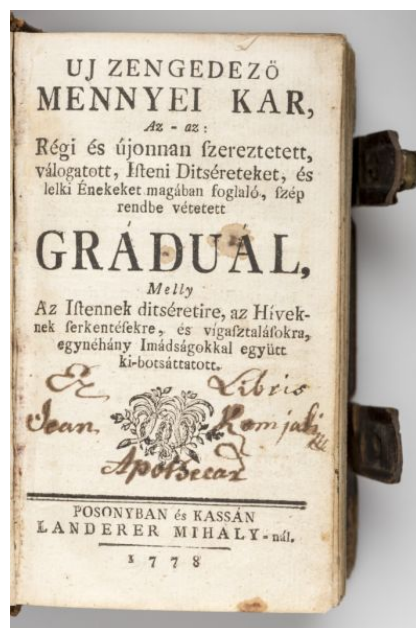 UJ ZENGEDEZŐ
MENNYEI KAR,
Az - az:
Régi és újonnan ſzereztetett,
válogatott, Iſteni Ditséreteket, és
lelki Énekeket magában foglaló, ſzép
rendbe vétetett
GRÁDUÁL,
Melly
Az Iſtennek ditséretire, az Hívek-
nek ſerkentéſekre, és vígaſztaláſokra,
egynéhány Imádságokkal együtt
ki-botsáttatott.
Ex Libris
Joan. Komjati
Apothecar
POSONYBAN és KASSÁN
LANDERER MIHÁLY-nál.
1778